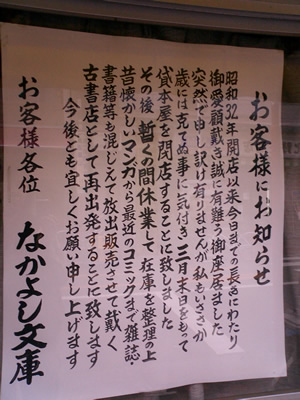 お客様にお知らせ
昭和32年開店以来今日までの長きにわたり
御愛顧戴き誠に有難う御座居ました
突然で申し訳有りませんが私もいささか
歳には克てぬ事に気付き三月末日をもって
貸本屋を閉店することに致しました
その後暫くの間休業して在庫を整理の上
昔懐かしいマンガから最近のコミックまで雑誌・
書籍等も混じえて放出販売させて戴く
古書店として再出発することに致します
今後とも宜しくお願い申し上げます
お客様各位
なかよし文庫